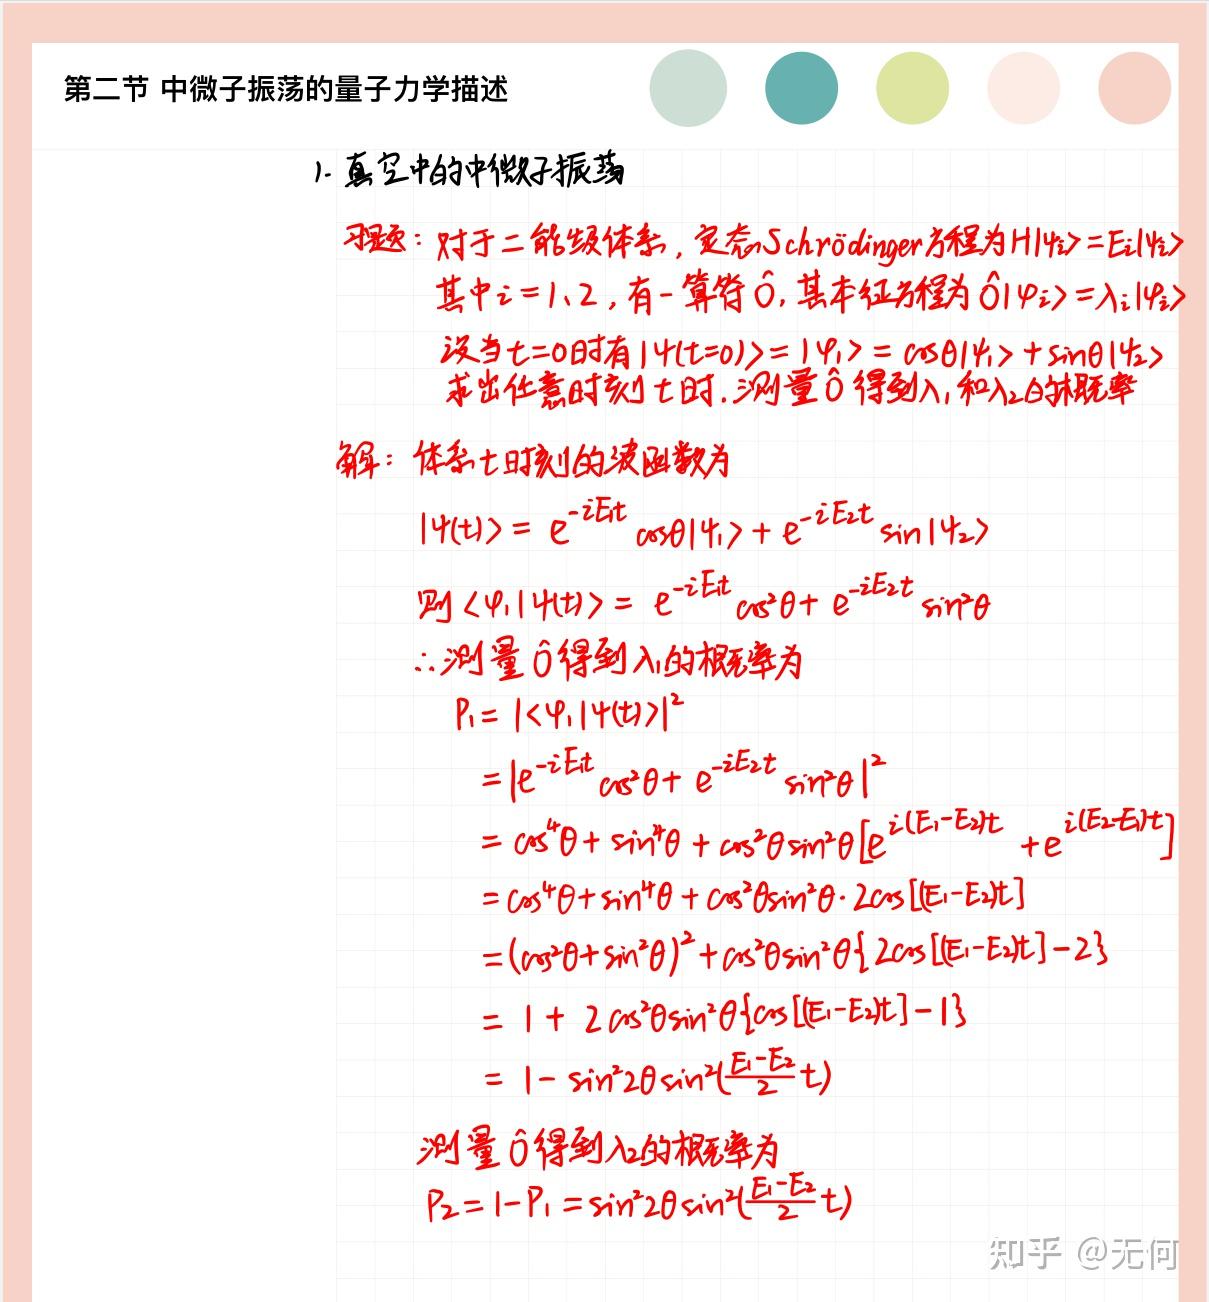 第二节 中微子振荡的量子力学描述
1. 真空中的中微子振荡
习题：对于二能级体系，定态Schrödinger方程为H|ψi>=Ei|ψi>
其中i=1、2，有一算符Ô，其本征方程为Ô|φi>=λi|φi>
设当t=0时有|ψ(t=0)>=|φ₁>=cosθ|ψ₁>+sinθ|ψ₂>
求出任意时刻t时，测量Ô得到λ₁和λ₂的概率
解：体系t时刻的波函数为
|ψ(t)> = e^{-iE₁t} cosθ|ψ₁> + e^{-iE₂t} sin|ψ₂>
则<φ₁|ψ(t)> = e^{-iE₁t} cos²θ + e^{-iE₂t} sin²θ
∴测量Ô得到λ₁的概率为
P₁ = |<φ₁|ψ(t)>|²
= |e^{-iE₁t} cos²θ + e^{-iE₂t} sin²θ|²
= cos⁴θ + sin⁴θ + cos²θsin²θ[e^{i(E₁-E₂)t} + e^{i(E₂-E₁)t}]
= cos⁴θ + sin⁴θ + cos²θsin²θ·2cos[(E₁-E₂)t]
= (cos²θ+sin²θ)² + cos²θsin²θ{2cos[(E₁-E₂)t]-2}
= 1 + 2cos²θsin²θ{cos[(E₁-E₂)t]-1}
= 1 - sin²2θsin²(\frac{E₁-E₂}{2}t)
测量Ô得到λ₂的概率为
P₂ = 1-P₁ = sin²2θsin²(\frac{E₁-E₂}{2}t)
知乎 @无何